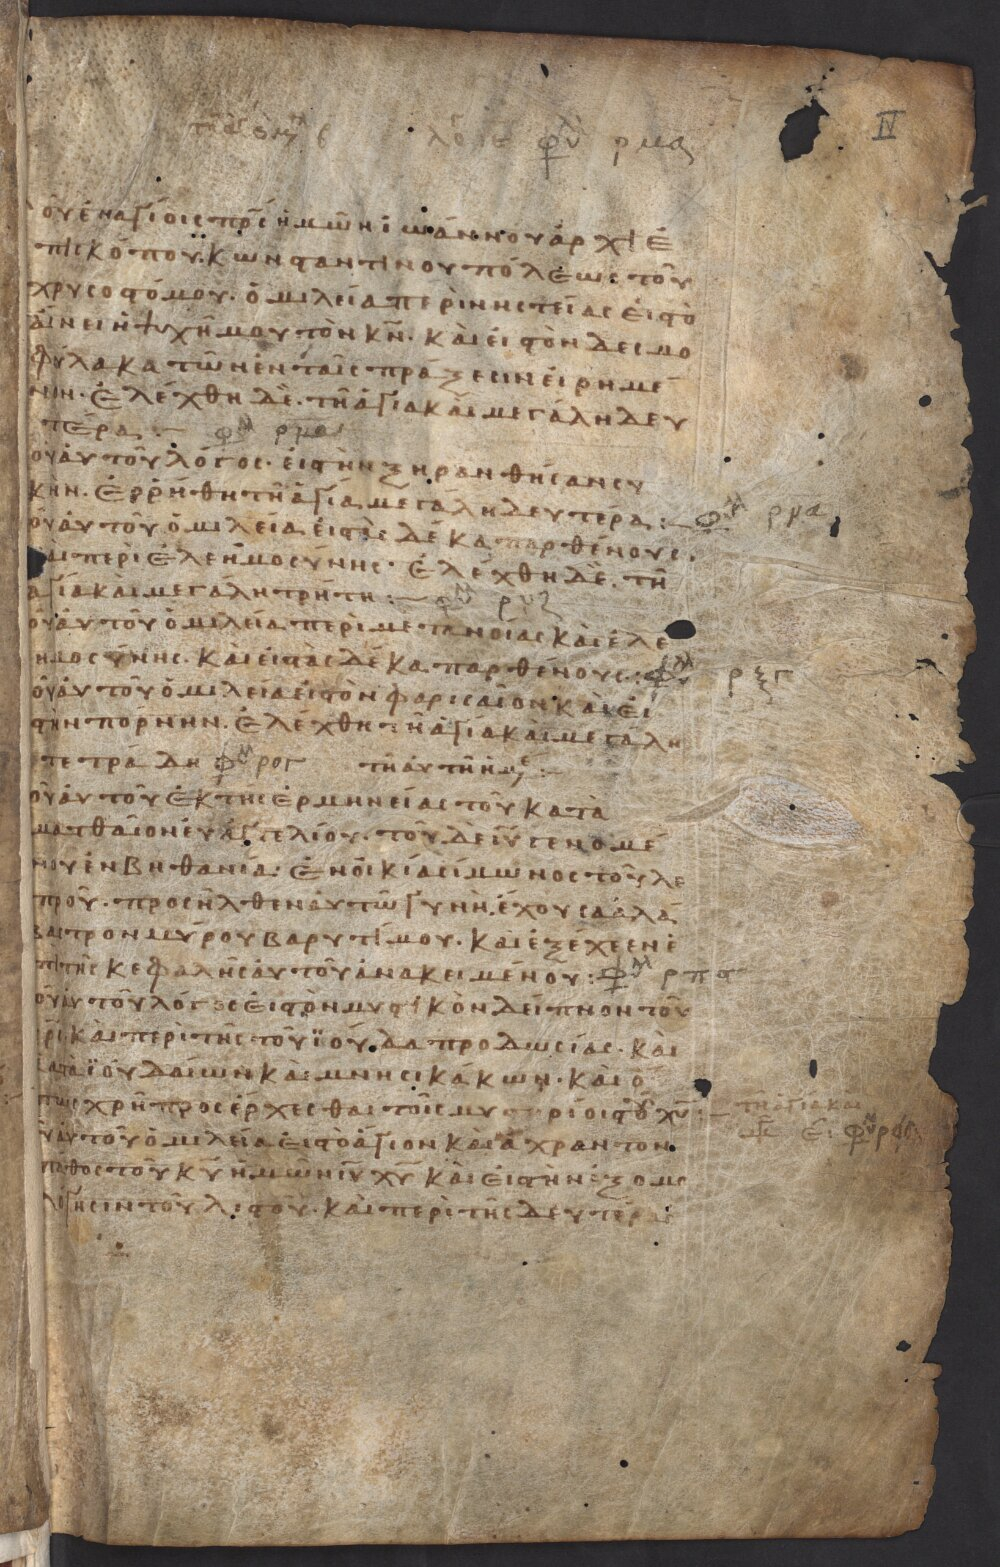 ου ἐν ἁγίοις πρσ ἡμῶν ἰωάννου ἀρχιε
πισκόπου κωνσταντινουπόλεως τοῦ
χρυσοστόμου· ὁμιλεία περὶ νηστείας εἰς τὸ
αἴνει ἡ ψυχή μου τὸν κν· καὶ εἰς τὸν δεσμο
φύλακα τῶν ἐν ταῖς πράξεσιν εἰρημέ
νων· ἐλέχθη δὲ τῆ ἁγία καὶ μεγάλη δευ
τέρα :— φυλ ρμα
οῦ αὐτοῦ λόγος εἰς τὴν ξηρανθῖσαν συ
κῆν· ἐρρήθη τῆ ἁγία μεγάλη δευτέρα :— φυλ ρμα
οῦ αὐτοῦ ὁμιλεία εἰς τὰς δέκα παρθένους·
καὶ περὶ ἐλεημοσύνης· ἐλέχθη δὲ τῆ
ἁγία καὶ μεγάλη τρήτη :— φυλ
οῦ αὐτοῦ ὁμιλεία περὶ μετανοίας καὶ ἐλε
ημοσύνης· καὶ εἰς τὰς δέκα παρθένους : φυλ ρξγ
οῦ αὐτοῦ ὁμιλεία εἰς τὸν φαρισαῖον καὶ εἰς
τὴν πόρνην· ἐλέχθη τῆ ἁγία καὶ μεγάλη
τετράδη φυλ ρογ τῆ αὐτῆ ἡμε :—
οῦ αὐτοῦ ἐκ τῆς ἑρμηνείας τοῦ κατὰ
ματθαῖον εὐαγγελίου· τοῦ δὲ ιυ γενομέ
νου ἐν βηθανία· ἐν οἰκία σίμωνος τοῦ λε
προῦ· προσῆλθεν αὐτῶ γυνὴ ἔχουσα ἀλά
βαστρον μύρου βαρυτίμου· καὶ ἐξέχεεν ἐ
πὶ τῆς κεφαλῆς αὐτοῦ ἀνακειμένου : φυλ
οῦ αὐτοῦ λόγος εἰς τὸν μυστικὸν δείπνον τοῦ
καὶ περὶ τῆς τοῦ ϊούδα προδωσίας· καὶ
κατὰ ϊουδαίων καὶ μνησικάκων· καὶ ὅ
πως χρὴ προσέρχεσθαι τοῖς μυστηρίοις τοῦ χυ :— τῆ ἁγία καὶ
οῦ αὐτοῦ ὁμιλεία εἰς τὸ ἅγιον καὶ ἄχραντον
πάθος τοῦ κυ ἡμῶν ιυ χυ καὶ εἰς τὴν ἐξομο
λόγησιν τοῦ λιστοῦ· καὶ περὶ τῆς δευτέρας